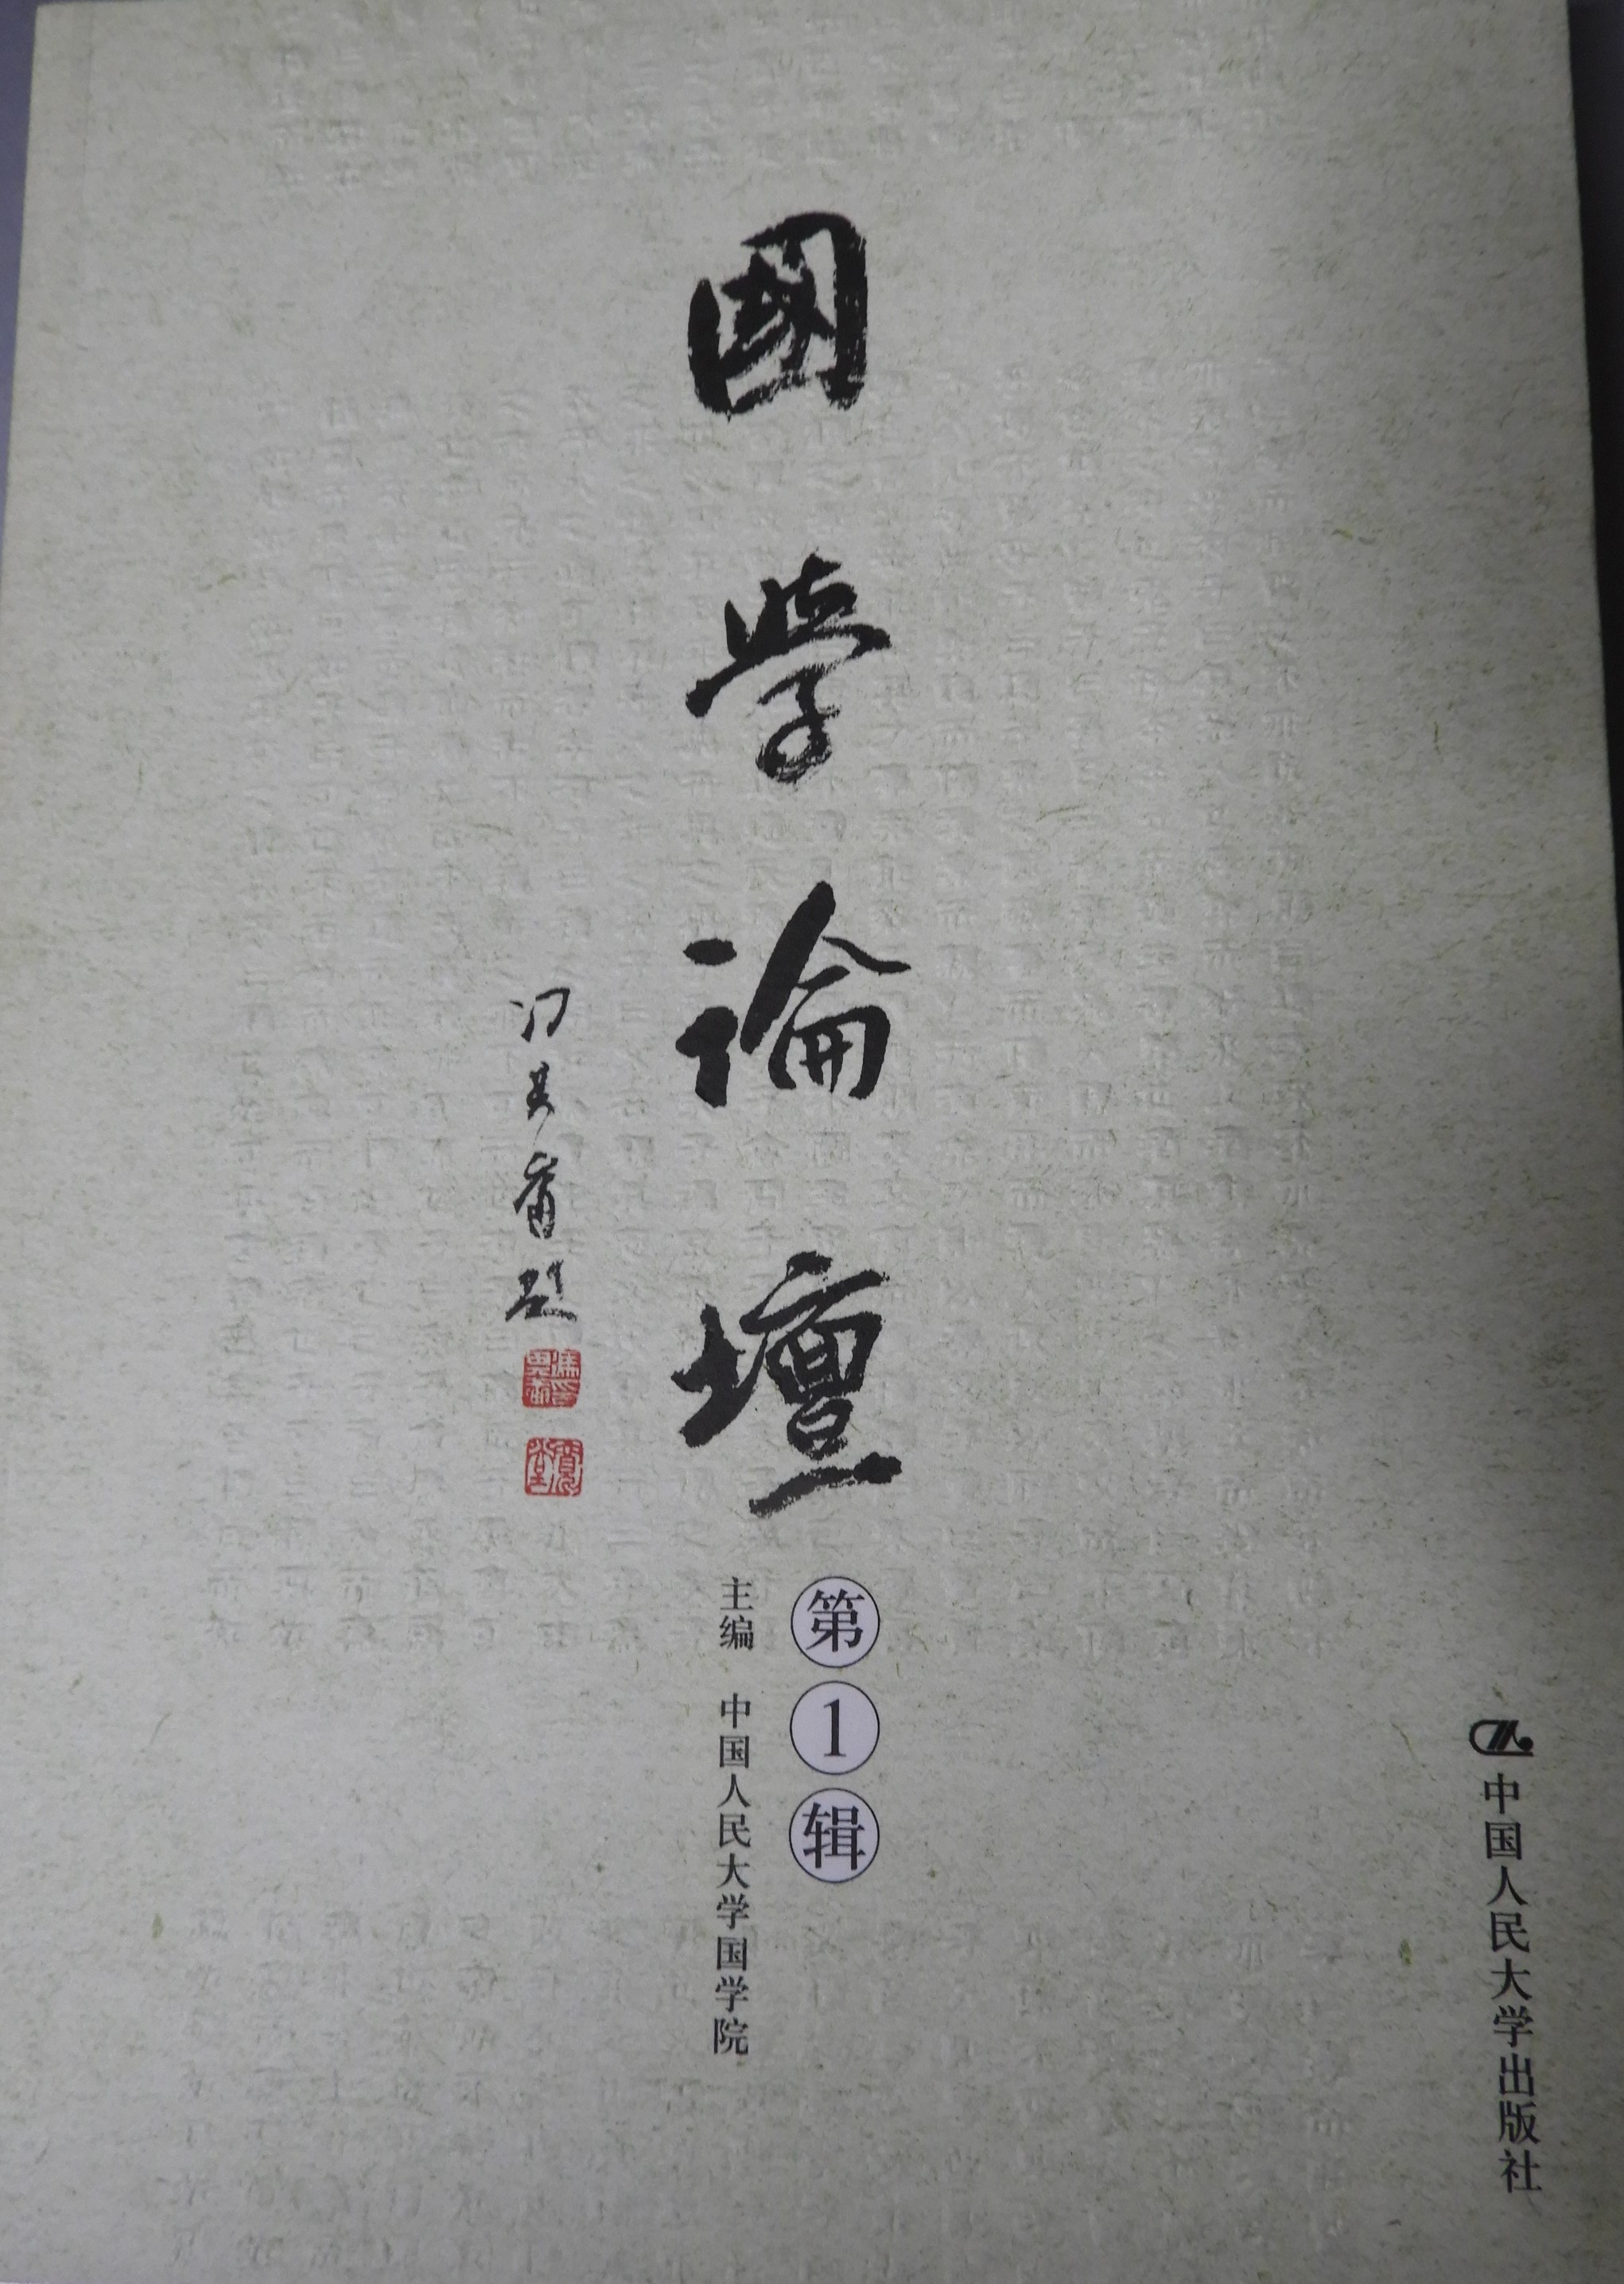 國學論壇
冯其庸题
第1辑
主编 中国人民大学国学院
中国人民大学出版社